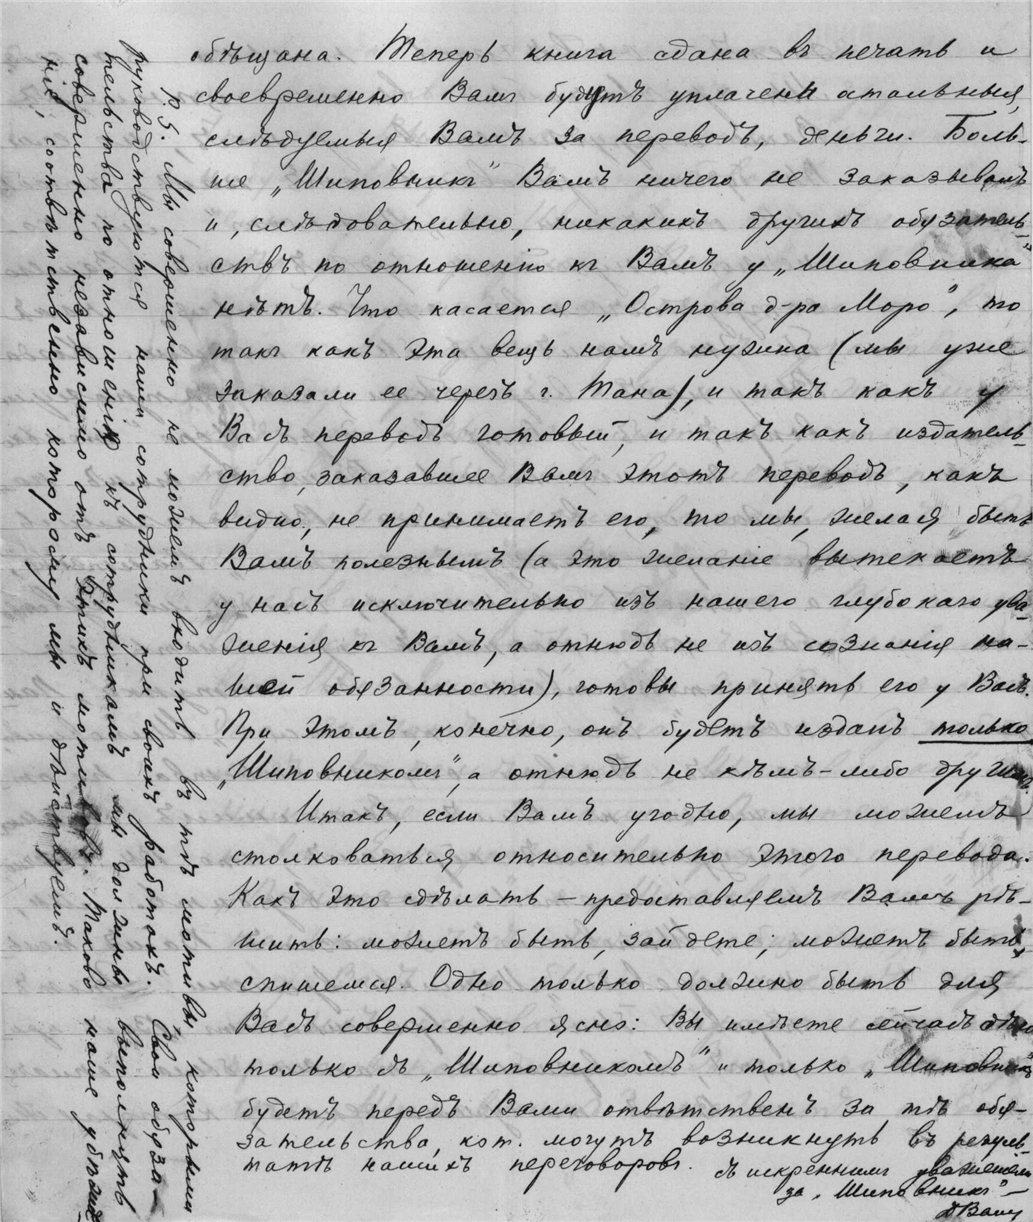 обѣщана. Теперь книга сдана въ печать и
своевременно Вамъ будутъ уплачены остальныя,
слѣдуемыя Вамъ за переводъ, деньги. Боль-
ше „Шиповникъ" Вамъ ничего не заказывалъ
и, слѣдовательно, никакихъ другихъ обязатель-
ствъ по отношенію къ Вамъ у „Шиповника"
нѣтъ. Что касается „Острова д-ра Моро", то
такъ какъ эта вещь намъ нужна (мы уже
заказали ее черезъ г. Тана), и такъ какъ у
Васъ переводъ готовый, и такъ какъ издатель-
ство, заказавшее Вамъ этотъ переводъ, какъ
видно, не принимаетъ его, то мы, желая быть
Вамъ полезнымъ (а это желаніе вытекаетъ
у насъ исключительно изъ нашего глубокаго ува-
женія къ Вамъ, а отнюдь не изъ сознанія на-
шей обязанности), готовы принять его у Васъ.
При этомъ, конечно, онъ будетъ изданъ только
„Шиповникомъ", а отнюдь не кѣмъ-либо другимъ.
Итакъ, если Вамъ угодно, мы можемъ
столковаться относительно этого перевода.
Какъ это сдѣлать – предоставляемъ Вамъ рѣ-
шить: можетъ быть, зайдете; можетъ быть,
спишемся. Одно только должно быть для
Васъ совершенно ясно: Вы имѣете сейчасъ дѣло
только съ „Шиповникомъ" и только „Шиповникъ"
будетъ передъ Вами отвѣтственъ за тѣ обя-
зательства, кот. могутъ возникнуть въ резуль-
татѣ нашихъ переговоровъ. Съ искреннимъ уваженіемъ
за „Шиповникъ" –
P.S. Мы совершенно не можемъ входить въ тѣ мотивы, которыми
руководствуются наши сотрудники при своихъ работахъ. Свои обяза-
тельства по отношенію къ сотрудникамъ мы должны выполнять
совершенно независимо отъ этихъ мотивовъ. Таково наше убѣжде-
ніе, соотвѣтственно которому мы и дѣйствуемъ.